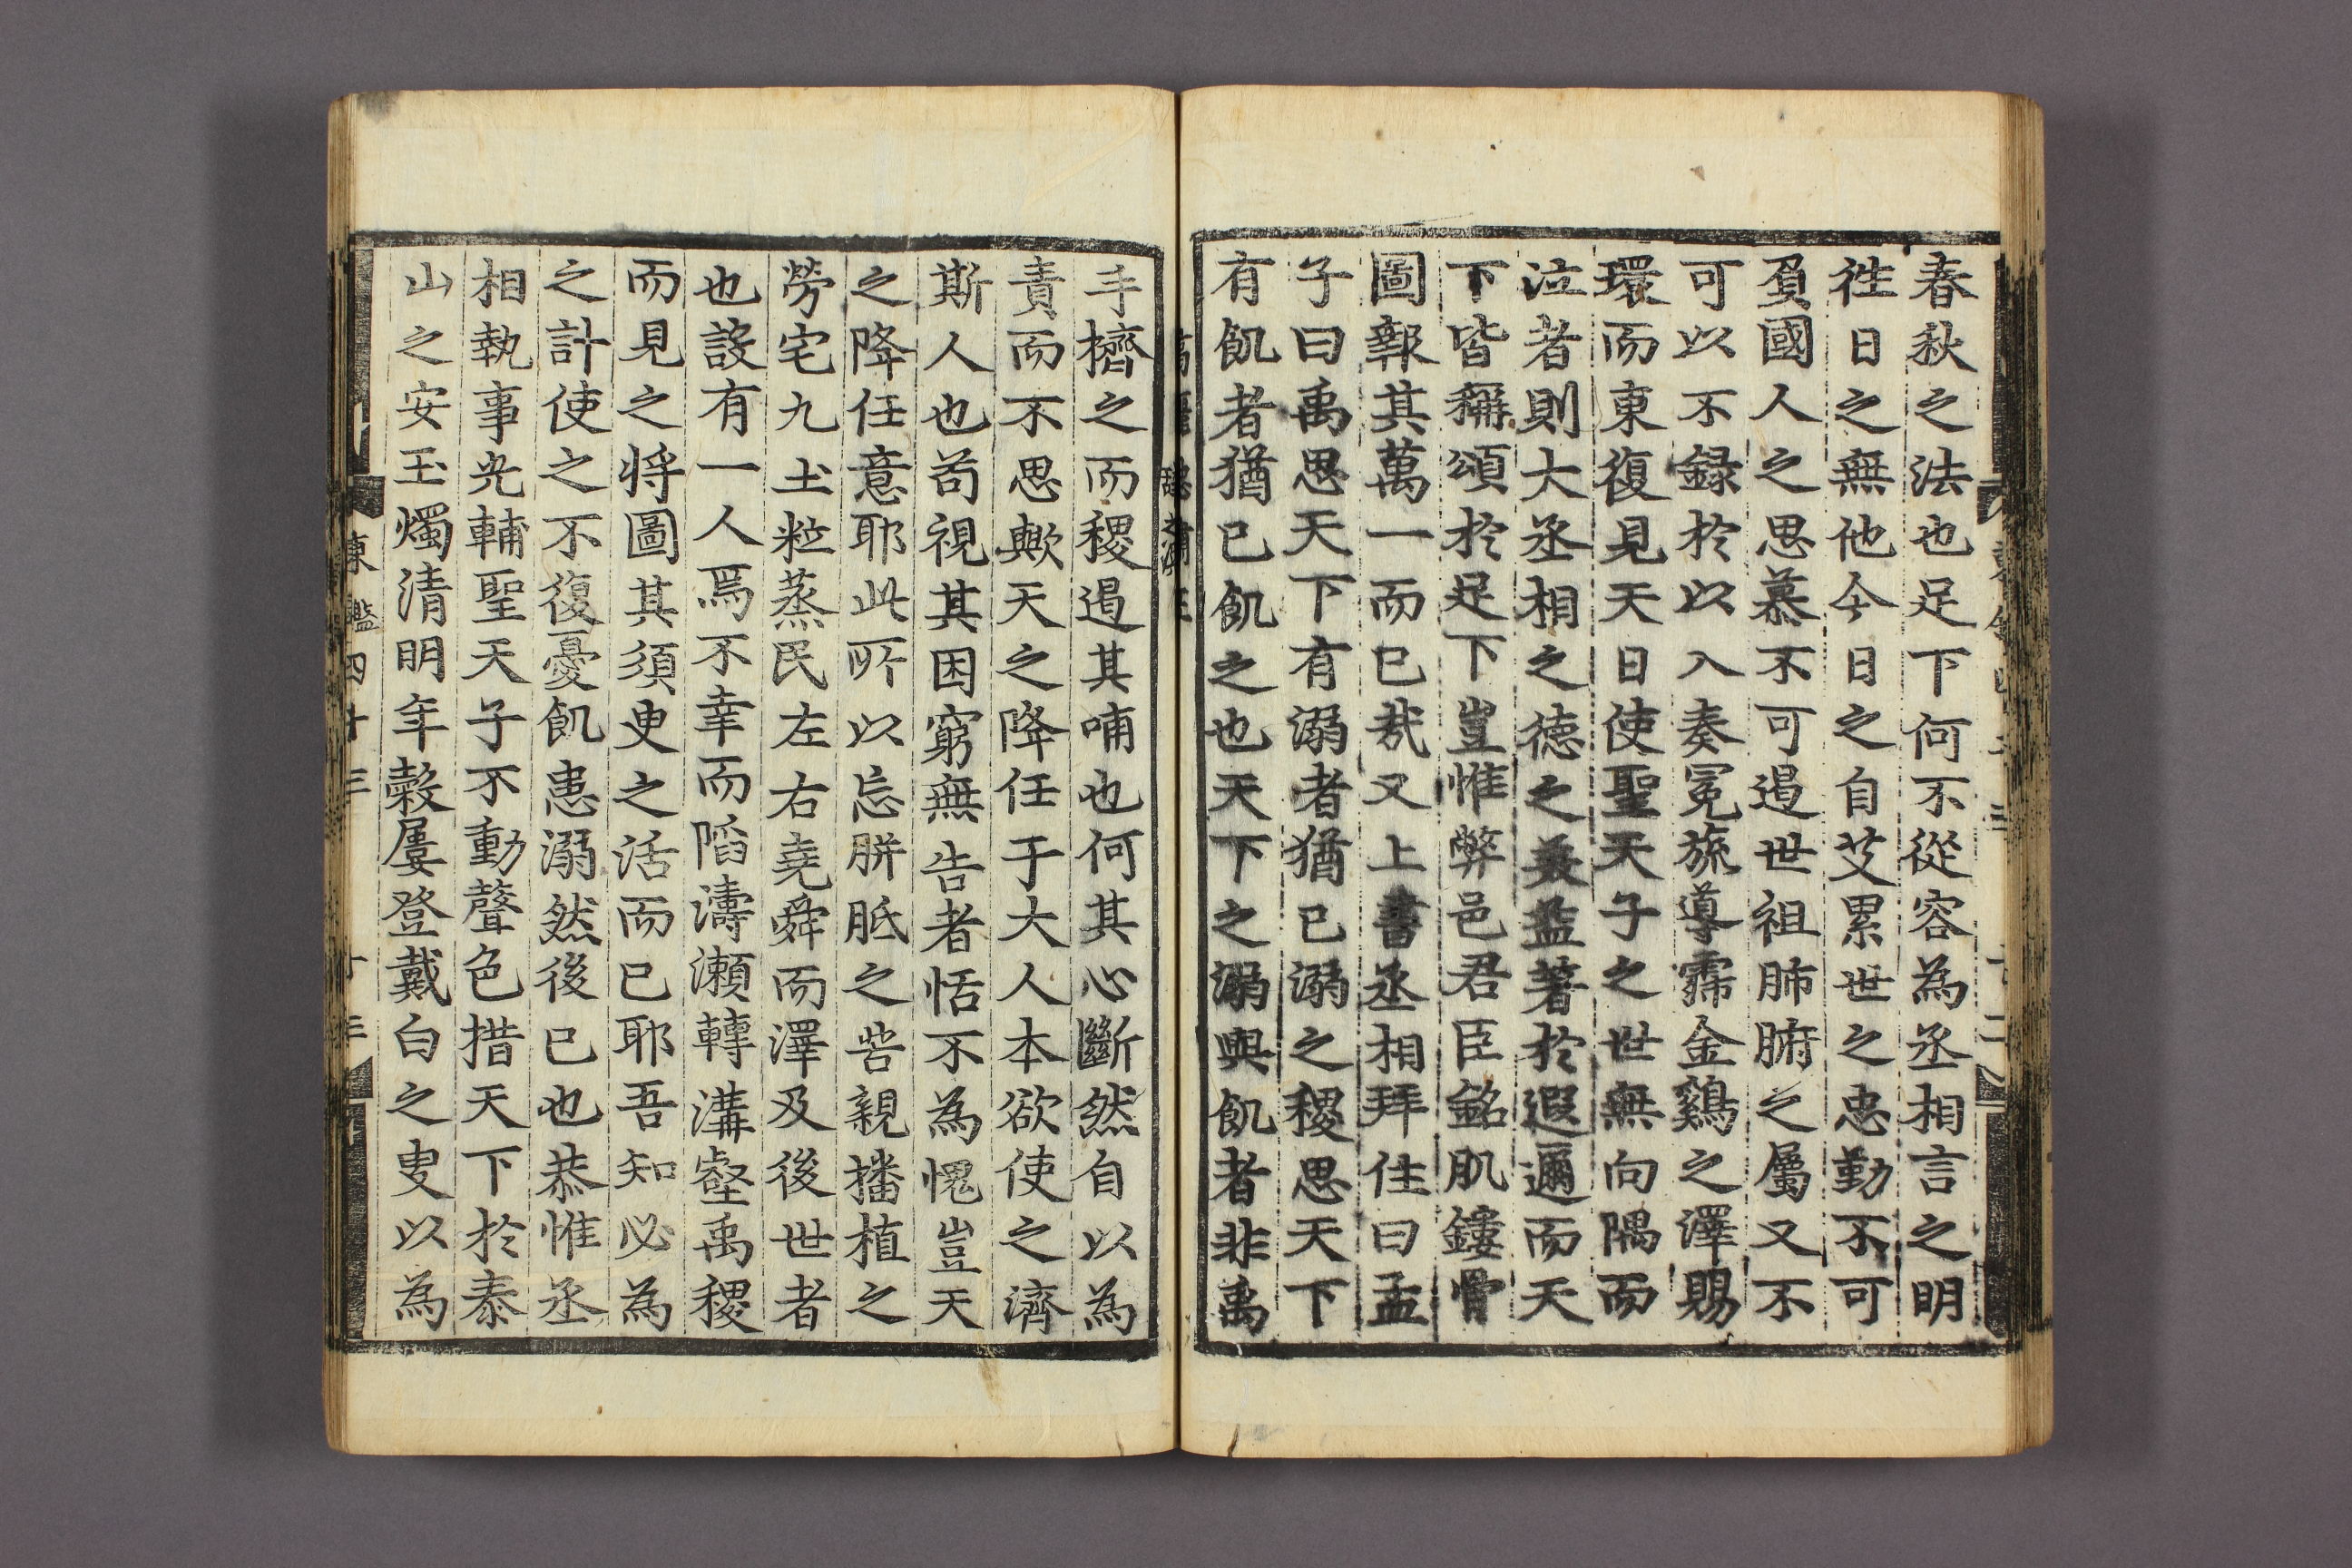 春秋之法也足下何不從容為丞相言之明
徃日之無他今日之自艾累世之忠勤不可
負國人之思慕不可遏世祖肺腑之屬又不
可以不録於以入奏冕旒導霈金鷄之澤賜
環而東復見天日使聖天子之世無向隅而
泣者則大丞相之德之美益著於遐邇而天
下皆稱頌於足下豈惟弊邑君臣銘肌鏤骨
圖報其萬一而已㦲又上書丞相拜住曰孟
子曰禹思天下有溺者猶已溺之稷思天下
有飢者猶已飢之也天下之溺與飢者非禹
手擠之而稷遏其哺也何其心斷然自以為
責而不思歟天之降任于大人本欲使之濟
斯人也苟視其困窮無告者恬不為愧豈天
之降任意耶此所以忘胼胝之苦親播植之
勞宅九土粒蒸民左右堯舜而澤及後世者
也設有一人焉不幸而陷濤瀨轉溝壑禹稷
而見之将圖其須臾之活而已耶吾知必為
之計使之不復憂飢患溺然後已也恭惟丞
相執事光輔聖天子不動聲色措天下於泰
山之安玉燭清明年穀屢登戴白之叟以為
東鑑四十三